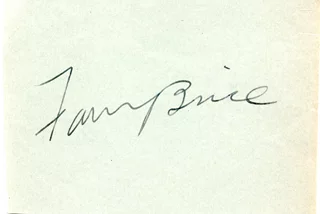 Fanny Brice